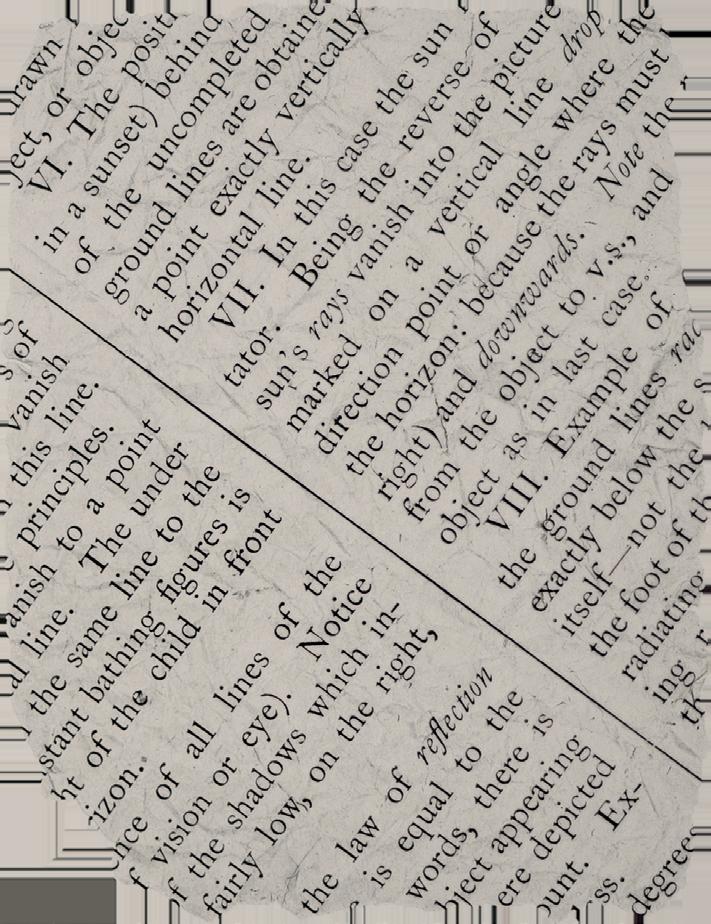 s of
vanish
this line.
principles.
anish to a point
al line. The under
the same line to the
stant bathing figures is
ht of the child in front
izon.
nce of all lines of the
f vision or eye). Notice
f the shadows which in-
fairly low, on the right,
the law of reflection
is equal to the
words, there is
bject appearing
ere depicted
ount. Ex-
ss.
degree
drawn
ject, or objec
VI. The positi
in a sunset) behind
of the uncompleted
ground lines are obtaine
a point exactly vertically
horizontal line.
VII. In this case the sun
tator. Being the reverse of
sun's rays vanish into the picture
marked on a vertical line drop
direction point or angle where the
the horizon: because the rays must
right) and downwards. Note the
from the object to v.s., and
object as in last case.
VIII. Example of
the ground lines rac
exactly below the s
itself—not the
the foot of th
radiating
ing r
th